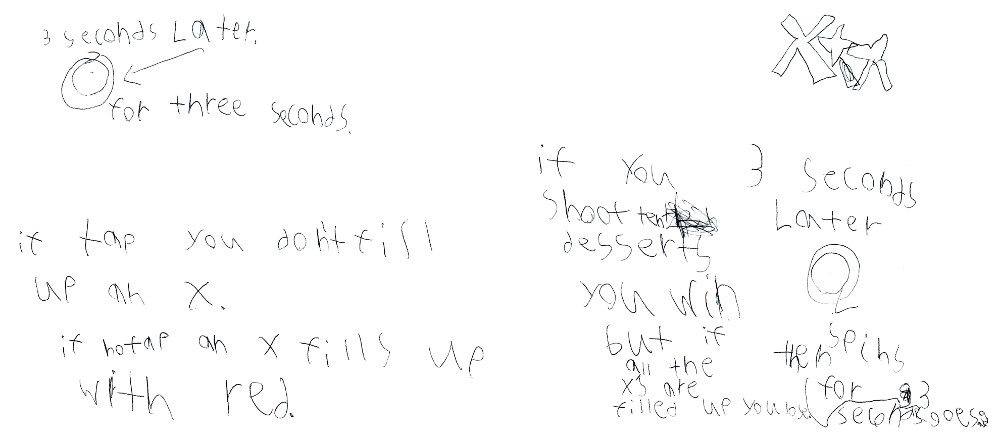 3 seconds Later.
for three seconds.
if tap you don't fill
up an X.
if notap an X fills up
with red.
if you
shoot ten
desserts
you win
but if
all the
xs are
filled up you
3 seconds
Later
spins
then
for 3